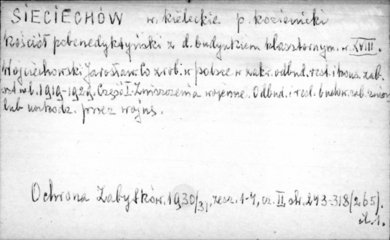 SIECIECHÓW w. kieleckie p. kozienicki
Kościół pobenedyktyński z d. budynkiem klasztornym. w. XVIII.
Wojciechowski Jarosław. Co zrob. w Polsce w zakr. odbud. rest. i kons. zab.
w l. 1919-1929. Część I. Zniszczenia wojenne. Odbud. i rest. budow. zab. zniszcz.
lub uszkodz. przez wojnę.
Ochrona Zabytków. 1930/31, zesz. 1-4, cz. II, str. 243-318 /265/.
il. 1.